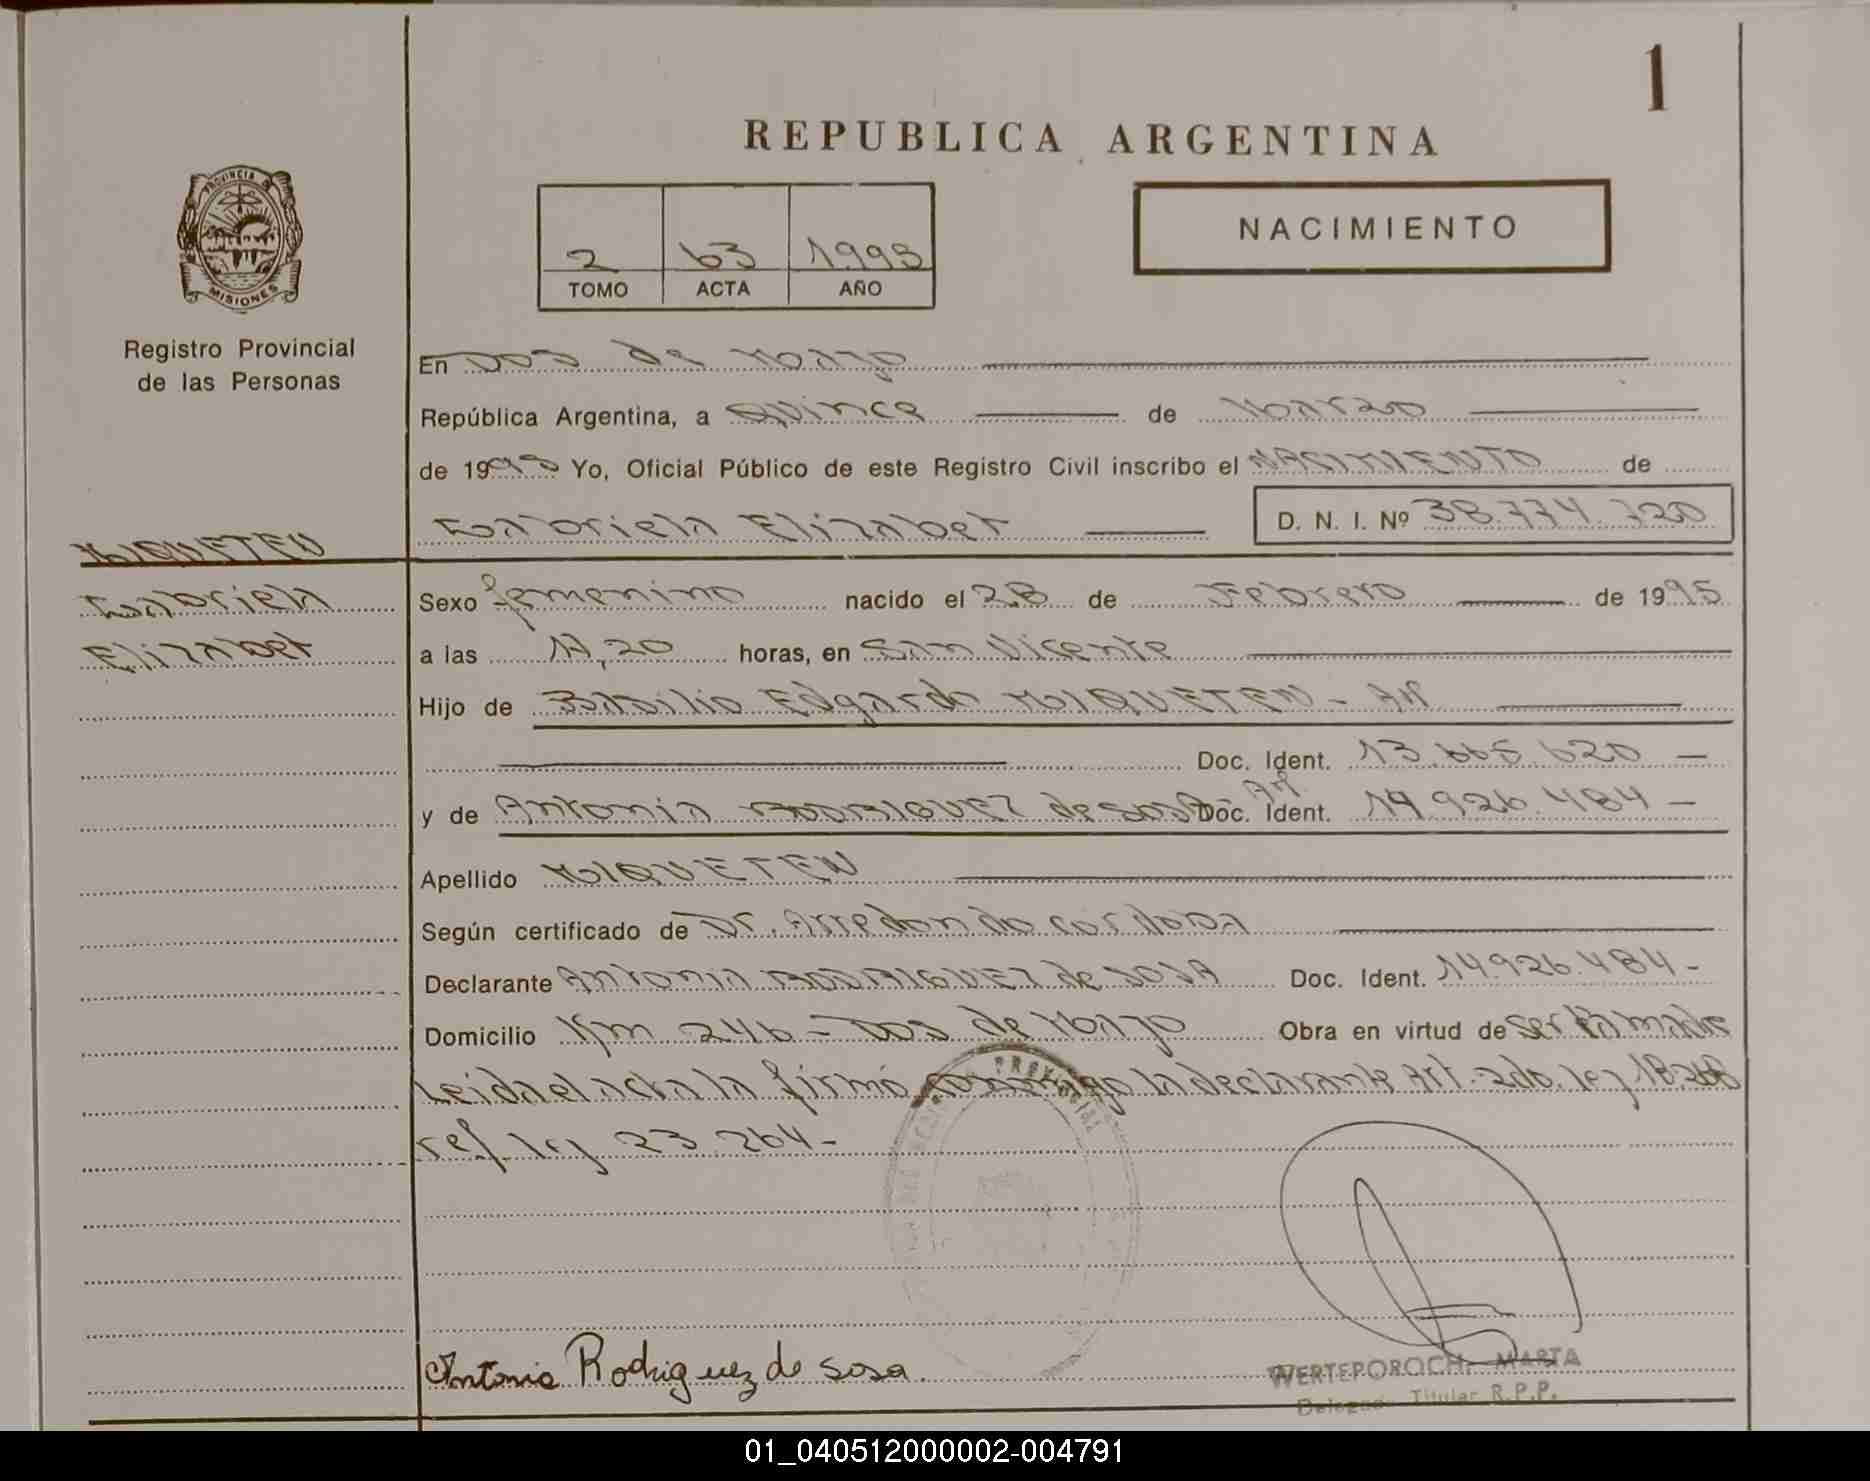 1
REPUBLICA ARGENTINA
PROVINCIA DE
MISIONES
NACIMIENTO
2 63 1995
TOMO ACTA AÑO
Registro Provincial
de las Personas
En Dos de Mayo
República Argentina, a Quince de Marzo
de 1995 Yo, Oficial Público de este Registro Civil inscribo el NACIMIENTO de
Gabriela Elizabet D. N. I. Nº 38.774.720
MIQUETEN
Gabriela
Elizabet
Sexo femenino nacido el 28 de Febrero de 1995
a las 17,20 horas, en San Vicente
Hijo de Basilio Edgardo MIQUETEN - AR
Doc. Ident. 13.665.620 —
y de Antonia RODRIGUEZ de SOSA - Ar. Doc. Ident. 14.926.484 —
Apellido MIQUETEN
Según certificado de Dr. Arredondo Cordoba
Declarante Antonia RODRIGUEZ de SOSA Doc. Ident. 14.926.484 -
Domicilio Km 246 - Dos de Mayo Obra en virtud de ser la madre
Leida el acta la firmó conmigo la declarante Art. 2do. ley 18.248
ref. ley 23.264 -
PROVINCIAL
Antonia Rodriguez de Sosa.
WERTEPOROCH MARTA
Delegada Titular R.P.P.
01_040512000002-004791